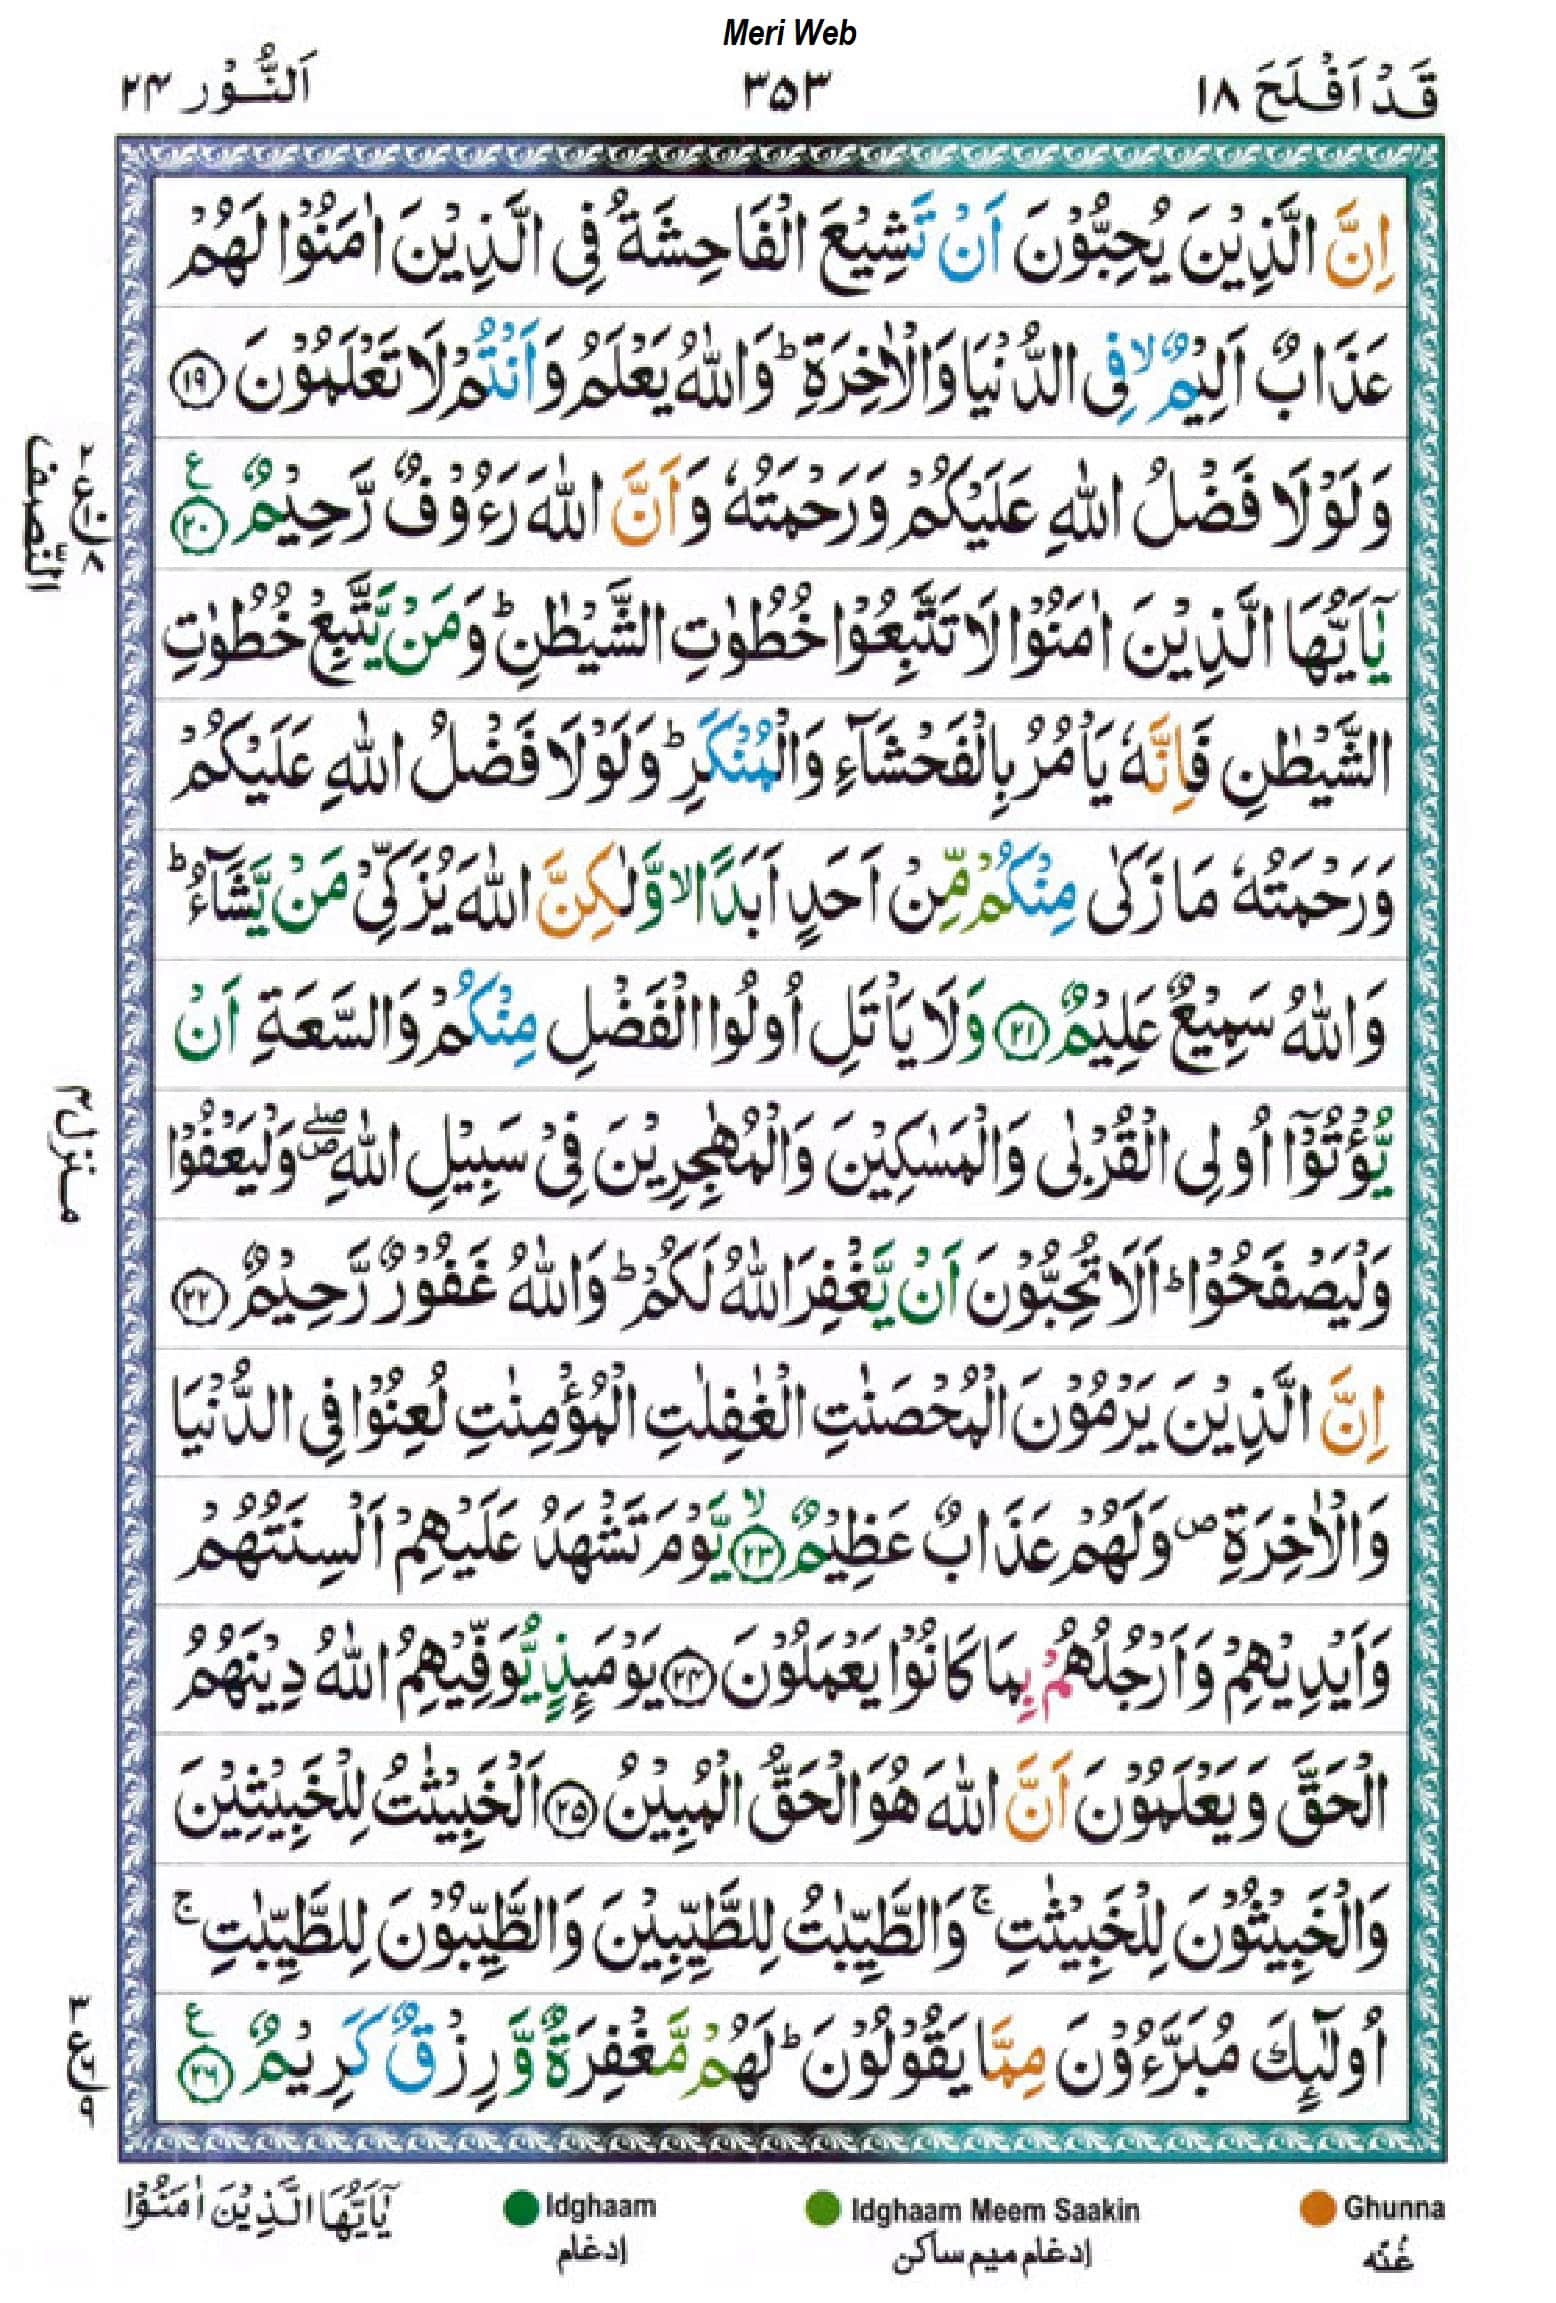 Meri Web
قَدْ اَفْلَحَ ١٨
٣٥٣
اَلنُّوْر ٢٤
اِنَّ الَّذِيْنَ يُحِبُّوْنَ اَنْ تَشِيْعَ الْفَاحِشَةُ فِى الَّذِيْنَ اٰمَنُوْا لَهُمْ
عَذَابٌ اَلِيْمٌ ۙ فِى الدُّنْيَا وَالْاٰخِرَةِ ؕ وَاللّٰهُ يَعْلَمُ وَاَنْتُمْ لَا تَعْلَمُوْنَ ﴿١٩﴾
وَلَوْلَا فَضْلُ اللّٰهِ عَلَيْكُمْ وَرَحْمَتُهٗ وَاَنَّ اللّٰهَ رَءُوْفٌ رَّحِيْمٌ ﴿٢٠﴾ ع
يٰۤاَيُّهَا الَّذِيْنَ اٰمَنُوْا لَا تَتَّبِعُوْا خُطُوٰتِ الشَّيْطٰنِ ؕ وَمَنْ يَّتَّبِعْ خُطُوٰتِ
الشَّيْطٰنِ فَاِنَّهٗ يَاْمُرُ بِالْفَحْشَآءِ وَالْمُنْكَرِ ؕ وَلَوْلَا فَضْلُ اللّٰهِ عَلَيْكُمْ
وَرَحْمَتُهٗ مَا زَكٰى مِنْكُمْ مِّنْ اَحَدٍ اَبَدًا ۙ وَّلٰكِنَّ اللّٰهَ يُزَكِّىْ مَنْ يَّشَآءُ ؕ
وَاللّٰهُ سَمِيْعٌ عَلِيْمٌ ﴿٢١﴾ وَلَا يَاْتَلِ اُولُوا الْفَضْلِ مِنْكُمْ وَالسَّعَةِ اَنْ
يُّؤْتُوْۤا اُولِى الْقُرْبٰى وَالْمَسٰكِيْنَ وَالْمُهٰجِرِيْنَ فِىْ سَبِيْلِ اللّٰهِ ۖ وَلْيَعْفُوْا
وَلْيَصْفَحُوْا ؕ اَلَا تُحِبُّوْنَ اَنْ يَّغْفِرَ اللّٰهُ لَكُمْ ؕ وَاللّٰهُ غَفُوْرٌ رَّحِيْمٌ ﴿٢٢﴾
اِنَّ الَّذِيْنَ يَرْمُوْنَ الْمُحْصَنٰتِ الْغٰفِلٰتِ الْمُؤْمِنٰتِ لُعِنُوْا فِى الدُّنْيَا
وَالْاٰخِرَةِ ص وَلَهُمْ عَذَابٌ عَظِيْمٌ ۙ ﴿٢٣﴾ يَّوْمَ تَشْهَدُ عَلَيْهِمْ اَلْسِنَتُهُمْ
وَاَيْدِيْهِمْ وَاَرْجُلُهُمْ بِمَا كَانُوْا يَعْمَلُوْنَ ﴿٢٤﴾ يَوْمَئِذٍ يُّوَفِّيْهِمُ اللّٰهُ دِيْنَهُمُ
الْحَقَّ وَيَعْلَمُوْنَ اَنَّ اللّٰهَ هُوَ الْحَقُّ الْمُبِيْنُ ﴿٢٥﴾ اَلْخَبِيْثٰتُ لِلْخَبِيْثِيْنَ
وَالْخَبِيْثُوْنَ لِلْخَبِيْثٰتِ ۚ وَالطَّيِّبٰتُ لِلطَّيِّبِيْنَ وَالطَّيِّبُوْنَ لِلطَّيِّبٰتِ ۚ
اُولٰٓئِكَ مُبَرَّءُوْنَ مِمَّا يَقُوْلُوْنَ ؕ لَهُمْ مَّغْفِرَةٌ وَّرِزْقٌ كَرِيْمٌ ﴿٢٦﴾ ع
النِّصف
منزل ٤
يٰۤاَيُّهَا الَّذِيْنَ اٰمَنُوْا
Idghaam
إدغام
Idghaam Meem Saakin
إدغام ميم ساكن
Ghunna
غُنّه